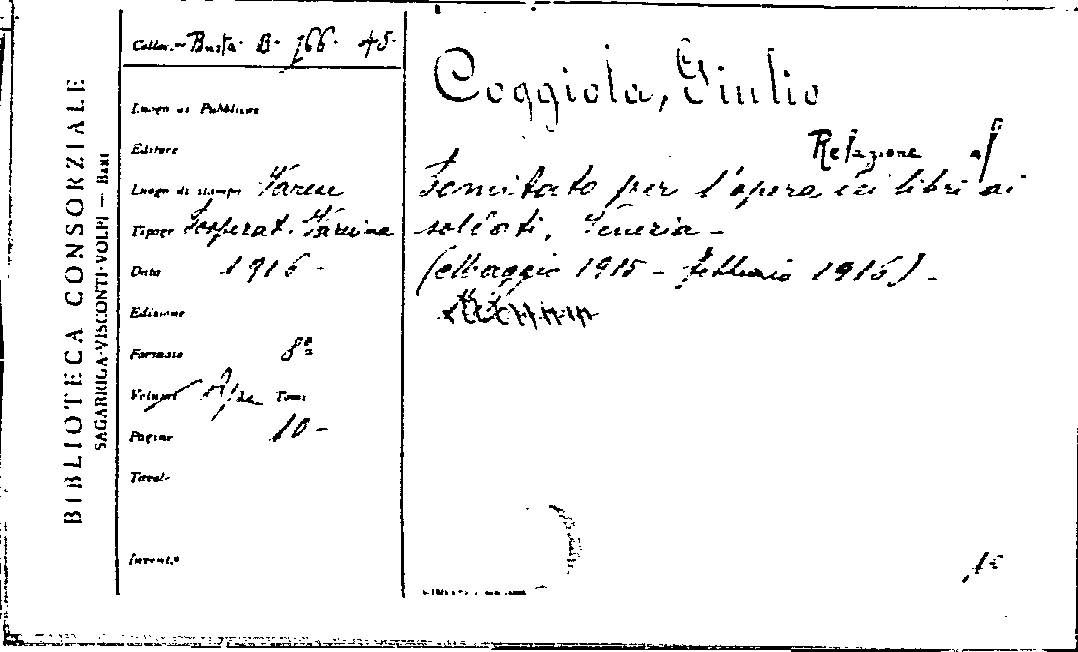 BIBLIOTECA CONSORZIALE
SAGARRIGA-VISCONTI-VOLPI — BARI
Colloc.— Busta B. 166. 45.
Luogo di Pubblicaz
Editore
Luogo di stampa Varese
Tipogr Cooperat. Varesina
Data 1916 -
Edizione
Formato 8º
Volumi Tomi
Pagine 10 -
Tavole
Invent.º
Coggiola, Giulio
Relazione al
Comitato per l'opera dei libri ai
soldati, Venezia -
(Maggio 1915 - febbraio 1916) -